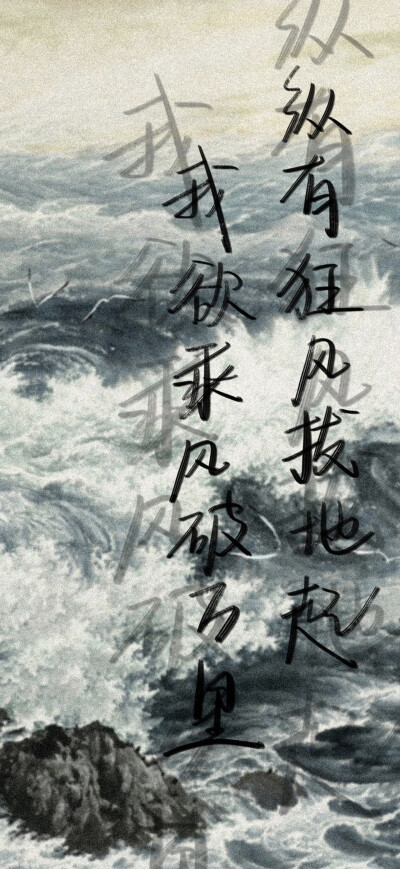 纵有狂风拔地起
我欲乘风破万里